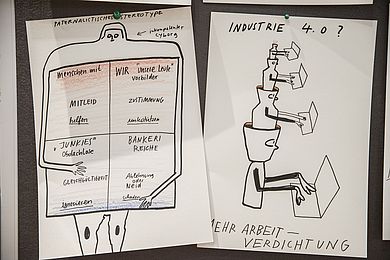 PATERNALISTISCHES STEREOTYPE
inkompetenter
Cyborg
Menschen mit
WIR "unsere Leute"
Vorbilder
MITLEID
helfen
ZUSTIMMUNG
unterstützen
"JUNKIES"
Obdachlose
GLEICHGÜLTIGKEIT
ignorieren
BANKER
REICHE
Ablehnung
oder
NEID
schaden
INDUSTRIE 4.0?
MEHR ARBEIT—
VERDICHTUNG